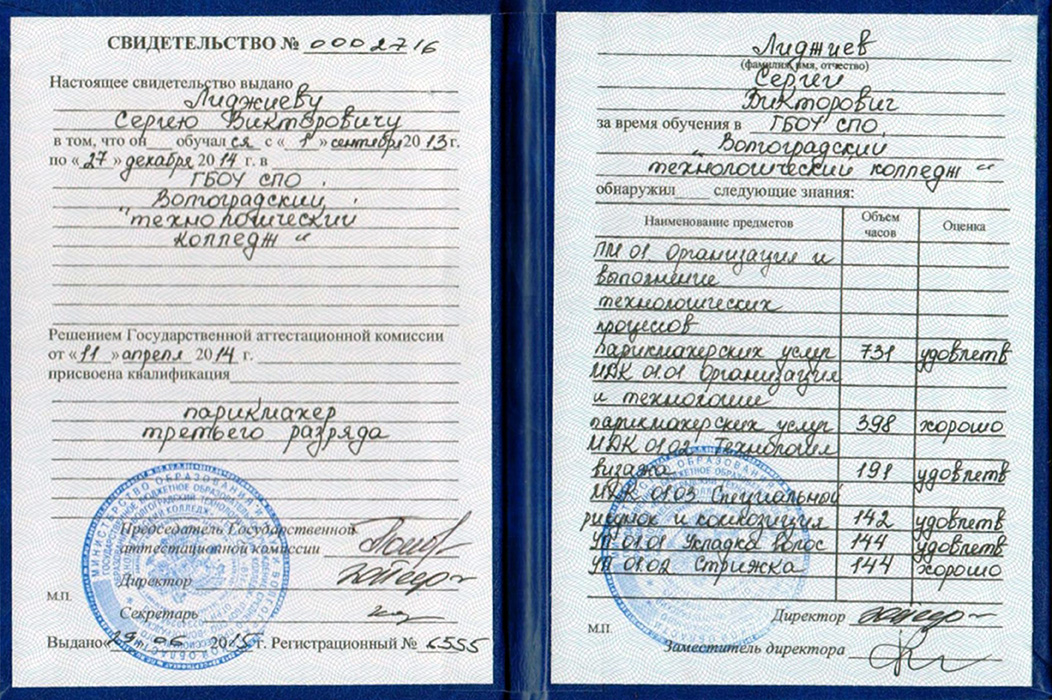 СВИДЕТЕЛЬСТВО № 0002716
Настоящее свидетельство выдано
Лиджиеву
Сергею Викторовичу
в том, что он обучался с «1» сентября 2013 г.
по «27» декабря 2014 г. в
ГБОУ СПО
Волгоградский
"технологический
колледж"
Решением Государственной аттестационной комиссии
от «11» апреля 2014 г.
присвоена квалификация
парикмахер
третьего разряда
Председатель Государственной
аттестационной комиссии
Директор
М.П.
Секретарь
Выдано «29» 06 2015 г. Регистрационный № 6555
Лиджиев
(фамилия, имя, отчество)
Сергей
Викторович
за время обучения в ГБОУ СПО
"Волгоградский
технологический колледж"
обнаружил следующие знания:
Наименование предметов Объем часов Оценка
ПМ 01 Организация и
выполнение
технологических
процессов
парикмахерских услуг 731 удовлетв
МДК 01.01 Организация
и технологии
парикмахерских услуг 398 хорошо
МДК 01.02 Технология
визажа 191 удовлетв
МДК 01.03 Специальной
рисунок и композиция 142 удовлетв
УП 01.01 Укладка волос 144 удовлетв
УП 01.02 Стрижка 144 хорошо
Директор
М.П.
Заместитель директора